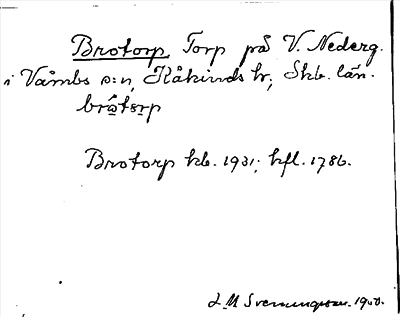 Brotorp Torp på V. Nederg.
i Våmbs s:n, Kåkinds hr; Skb. län.
brótor̤p
Brotorp kb. 1931; hfl. 1786.
L M Svenungsson. 1940.